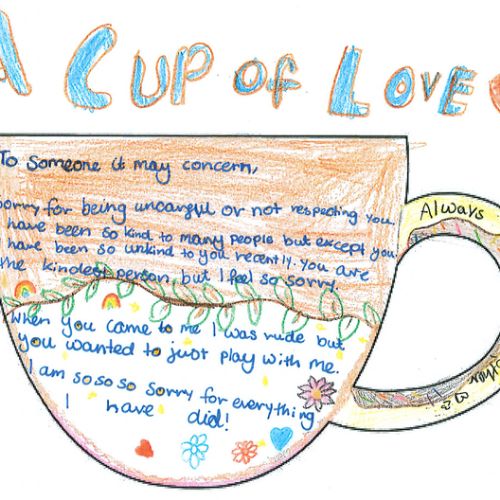 A CUP OF LOVE
To Someone it may concern,
sorry for being uncareful or not respecting you
have been so kind to many people but except you
have been so unkind to you recently. You are
the kindest person, but I feel so sorry.
When you came to me I was rude but
you wanted to just play with me.
I am so so so sorry for everything
I have did!
Always